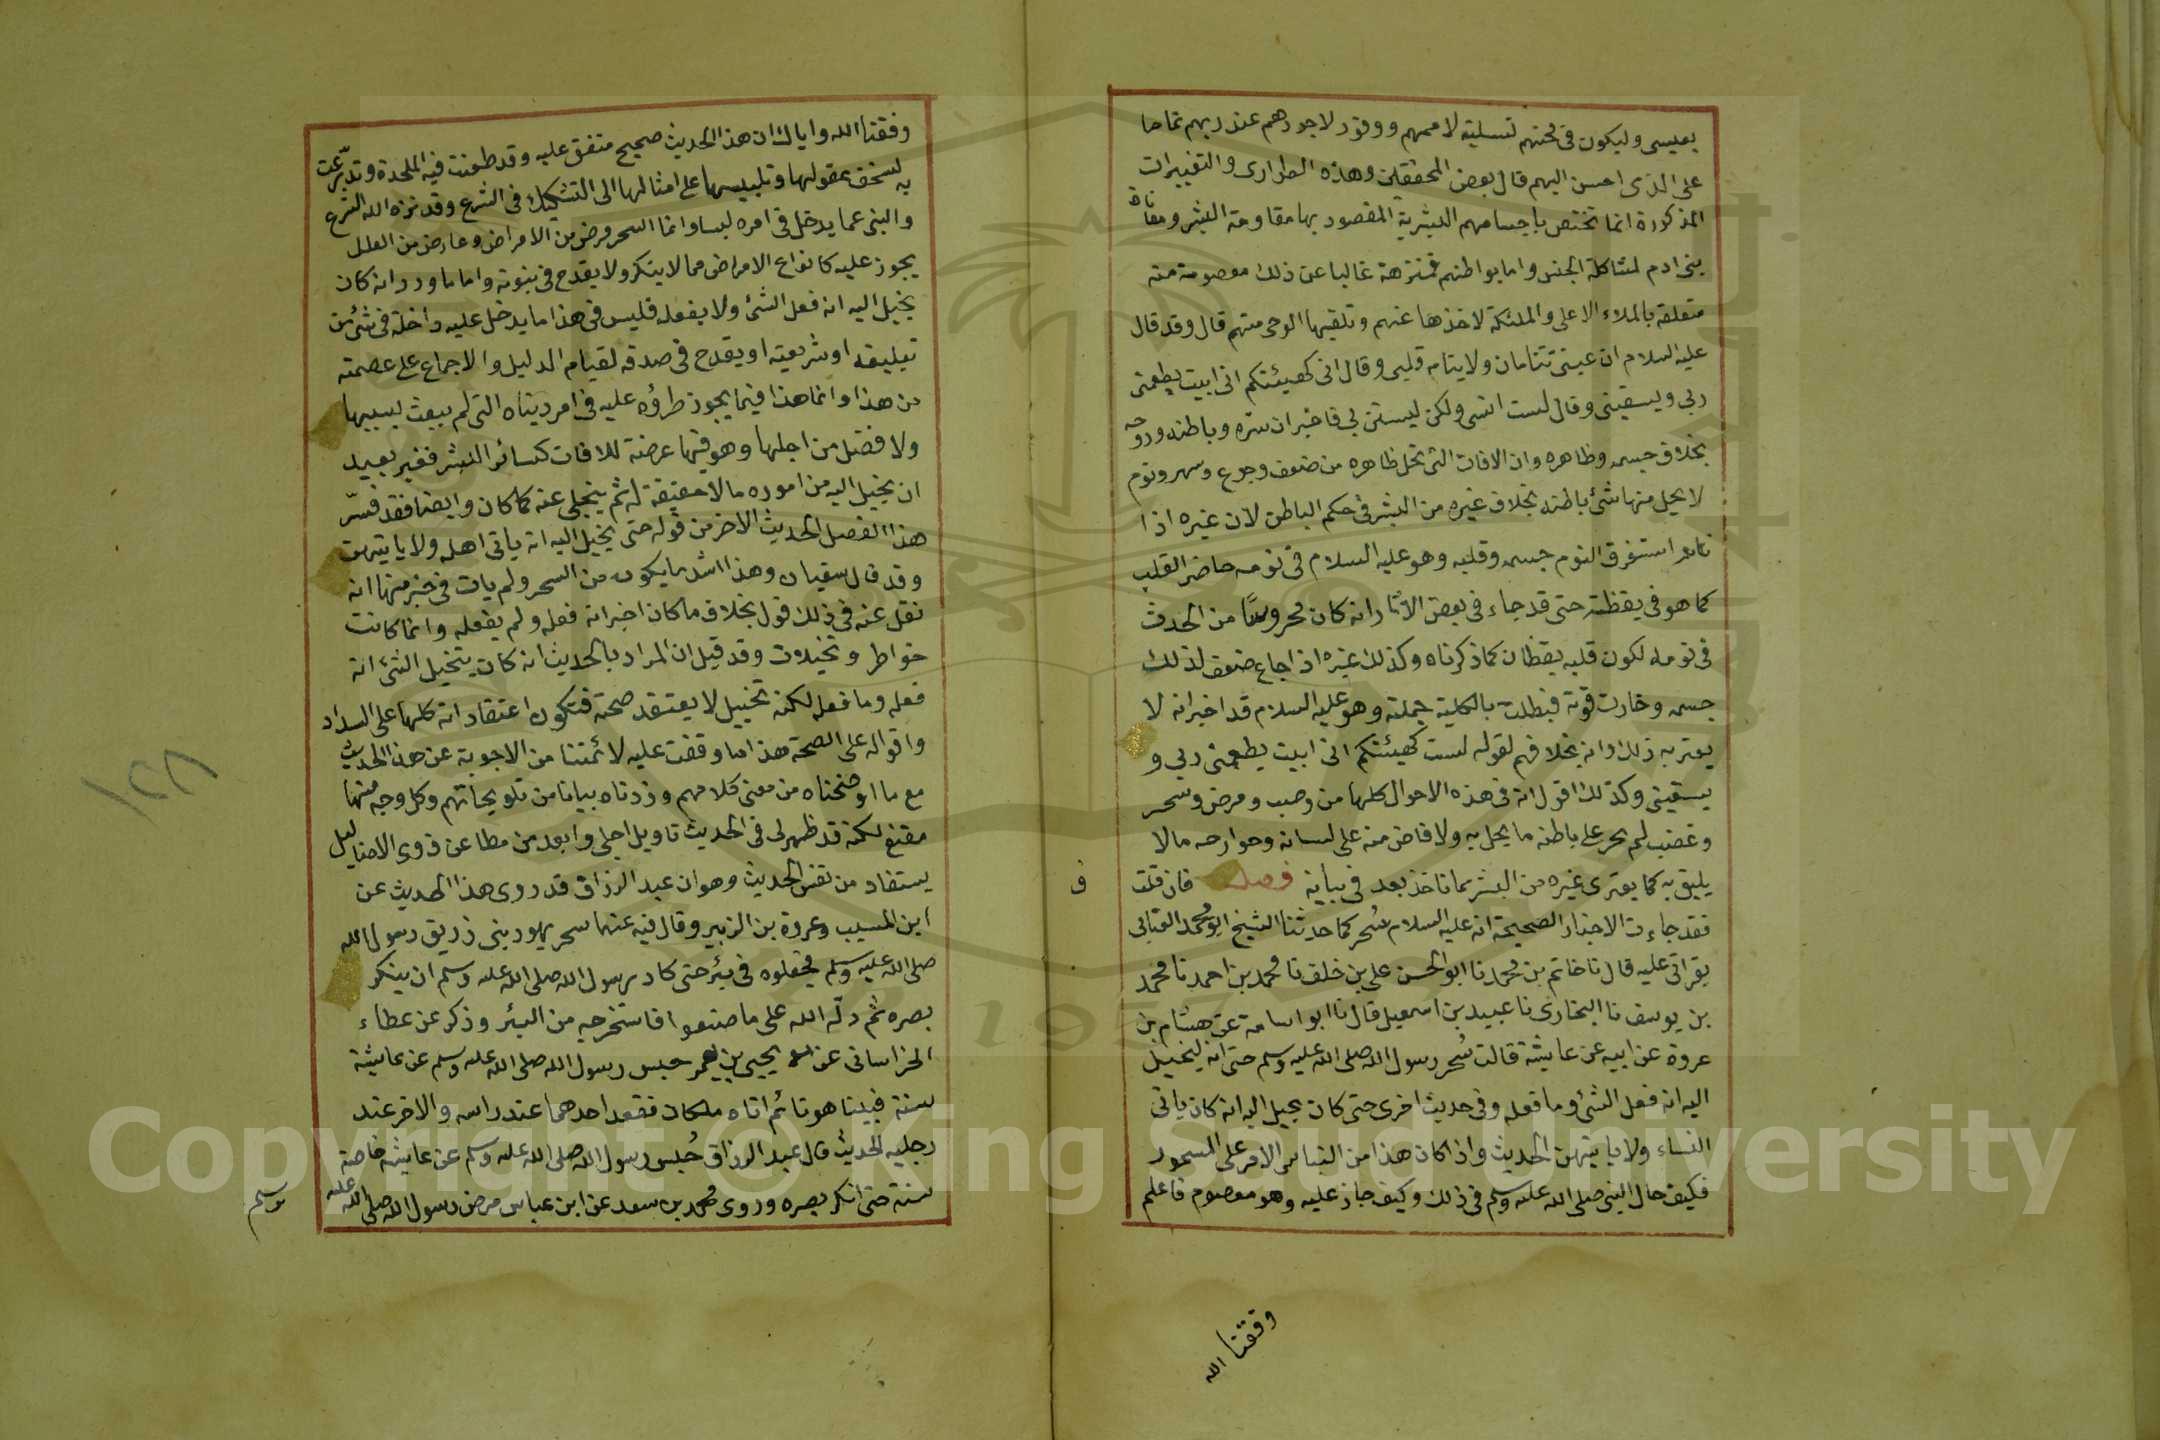 بعيسى وليكون فى محنهم تسلية لاممهم ووفور لاجورهم عند ربهم تماما
على الذى احسن اليهم قال بعض المحققين وهذه الطوارى والتغييرات
المذكورة انما تختص باجسامهم البشرية المقصود بها مقاومة البشر ومعاناة
بنى ادم لمشاكلة الجنس واما بواطنهم فمنزهة غالبا عن ذلك معصومة منه
متعلقة بالملاء الاعلى والملئكة لاخذها عنهم وتلقيها الوحى منهم قال وقد قال
عليه السلام ان عينى تنامان ولا ينام قلبى وقال انى لست كهيئتكم انى ابيت يطعمنى
ربى ويسقينى وقال لست انسى ولكن ليستن بى فاخبر ان سره وباطنه وروحه
بخلاف جسمه وظاهره وان الافات التى تحل ظاهره من ضعف وجوع وسهر ونوم
لا يحل منها شئ باطنه بخلاف غيره من البشر فى حكم الباطن لان غيره اذا
نام استغرق النوم جسمه وقلبه وهو عليه السلام فى نومه حاضر القلب
كما هو فى يقظته حتى قد جاء فى بعض الآثار انه كان محروسًا من الحدث
فى نومه لكون قلبه يقظان كما ذكرناه وكذلك غيره اذا جاع ضعف لذلك
جسمه وخارت قوته فبطلت بالكلية جملته وهو عليه السلام قد اخبر انه لا
يعتريه ذلك وانه بخلافهم لقوله لست كهيئتكم انى ابيت يطعمنى ربى و
يسقينى وكذلك اقول انه فى هذه الاحوال كلها من وصب ومرض وسحر
وغضب لم يجر على باطنه ما يخل به ولا فاض منه على لسانه وجوارحه ما لا
يليق به كما يعترى غيره من البشر مما ناخذ بعد فى بيانه فصل فان قلت
ف
فقد جاءت الاخبار الصحيحة انه عليه السلام سُحر كما حدثنا الشيخ ابو محمد العتابى
بقراتى عليه قال نا حاتم بن محمد نا ابو الحسن على بن خلف نا محمد بن احمد نا محمد
بن يوسف نا البخارى نا عبيد بن اسمعيل قال نا ابو اسامة عن هشام بن
عروة عن ابيه عن عايشة قالت سُحر رسول الله صلى الله عليه وسلم حتى انه ليخيل
اليه انه فعل الشئ وما فعله وفى حديث اخرى حتى كان يخيل اليه انه كان ياتى
النساء ولا ياتيهن الحديث واذا كان هذا من التباس الامر على المسحور
فكيف حال النبى صلى الله عليه وسلم فى ذلك وكيف جاز عليه وهو معصوم فاعلم
وفقنا الله
وفقنا الله واياك ان هذا الحديث صحيح متفق عليه وقد طعنت فيه الملحدة وتدرعت
به لسخف عقولها وتلبيسها على امثالها الى التشكيك فى الشرع وقد نزه الله الشرع
والنبى عما يدخل فى امره لبسا وانما السحر مرض من الامراض وعارض من العلل
يجوز عليه كانواع الامراض مما لا ينكر ولا يقدح فى نبوته واما ما ورد انه كان
يخيل اليه انه فعل الشئ ولا يفعله فليس فى هذا ما يدخل عليه داخلة فى شئ من
تبليغه او شريعته او يقدح فى صدقه لقيام الدليل والاجماع على عصمته
من هذا وانما هذا فيما يجوز طروه عليه فى امر دنياه التى لم يبعث بسببها
ولا فضل من اجلها وهو فيها عرضة للافات كسائر البشر فغير بعيد
ان يخيل اليه من اموره ما لا حقيقة له ثم ينجلى عنه كما كان وايضا فقد فسّر
هذا الفصل الحديث الاخر من قوله حتى يخيل اليه انه ياتى اهله ولا ياتيهن
وقد قال سفيان وهذا اشد ما يكون من السحر ولم يات فى خبر منها انه
نقل عنه فى ذلك قول بخلاف ما كان اخبر انه فعله ولم يفعله وانما كانت
خواطر وتخيلات وقد قيل ان المراد بالحديث انه كان يتخيل الشئ انه
فعله وما فعله لكنه تخييل لا يعتقد صحته فتكون اعتقاداته كلها على السداد
واقواله على الصحة هذا ما وقفت عليه لائمتنا من الاجوبة عن هذا الحديث
مع ما اوضحناه من معنى كلامهم وزدناه بيانا من تلويحاتهم وكل وجه منها
مقنع لكنه قد ظهر لى فى الحديث تاويل اجلى وابعد من مطاعن ذوى الاضاليل
يستفاد من نفس الحديث وهو ان عبد الرزاق قد روى هذا الحديث عن
ابن المسيب وعروة بن الزبير وقال فيه عنهما سحر يهود بنى زريق رسول الله
صلى الله عليه وسلم فجعلوه فى بئر حتى كاد رسول الله صلى الله عليه وسلم ان ينكر
بصره ثم دلّه الله على ما صنعوا فاستخرجه من البئر وذكر عن عطاء
الخراسانى عن يحيى بن يعمر حبس رسول الله صلى الله عليه وسلم عن عايشة
سنة فبينا هو نائم اتاه ملكان فقعد احدهما عند راسه والاخر عند
رجليه الحديث قال عبد الرزاق حُبس رسول الله صلى الله عليه وسلم عن عايشة خاصة
سنة حتى انكر بصره وروى محمد بن سعد عن ابن عباس مرض رسول الله صلى الله عليه
وسلم
١٢٨
Copyright © King Saud University